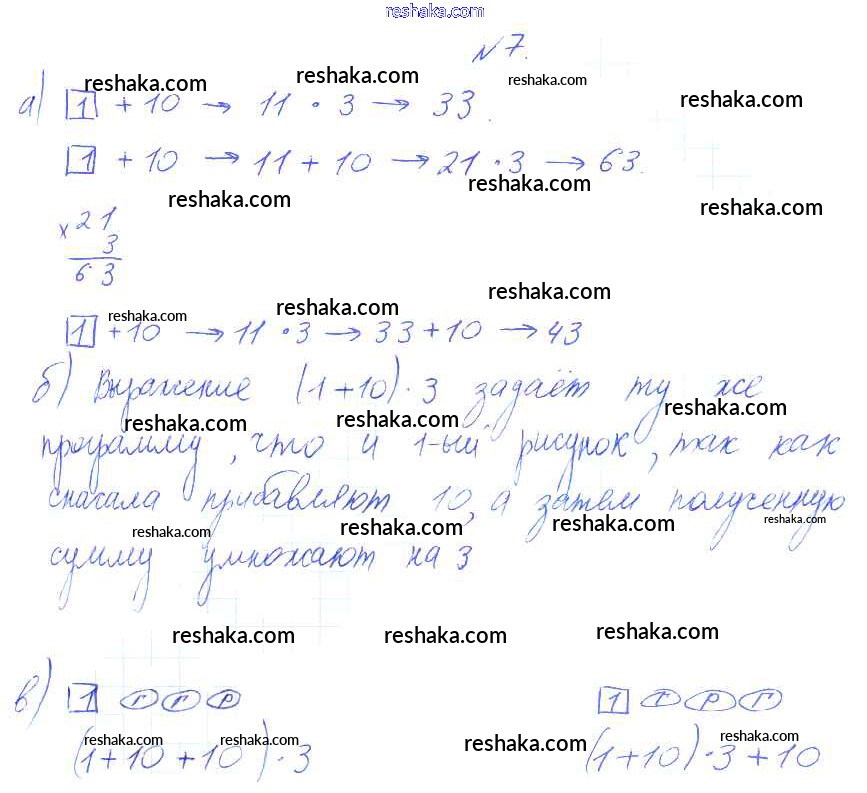 reshaka.com
№ 7.
а) 1 + 10 → 11 · 3 → 33.
1 + 10 → 11 + 10 → 21 · 3 → 63.
× 21
3
63
1 + 10 → 11 · 3 → 33 + 10 → 43
б) Выражение (1+10) · 3 задаёт ту же
программу, что и 1-ый рисунок, так как
сначала прибавляют 10, а затем полученную
сумму умножают на 3
в) 1 г г р 1 г р г
(1+10+10) · 3 (1+10) · 3 + 10
reshaka.com reshaka.com reshaka.com reshaka.com
reshaka.com reshaka.com reshaka.com
reshaka.com reshaka.com reshaka.com
reshaka.com reshaka.com reshaka.com
reshaka.com reshaka.com reshaka.com reshaka.com
reshaka.com reshaka.com reshaka.com
reshaka.com reshaka.com reshaka.com reshaka.com